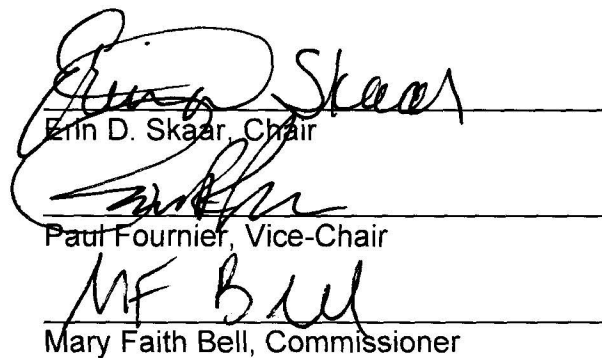 Erin Skaar
Erin D. Skaar, Chair
Paul Fournier, Vice-Chair
MF Bell
Mary Faith Bell, Commissioner